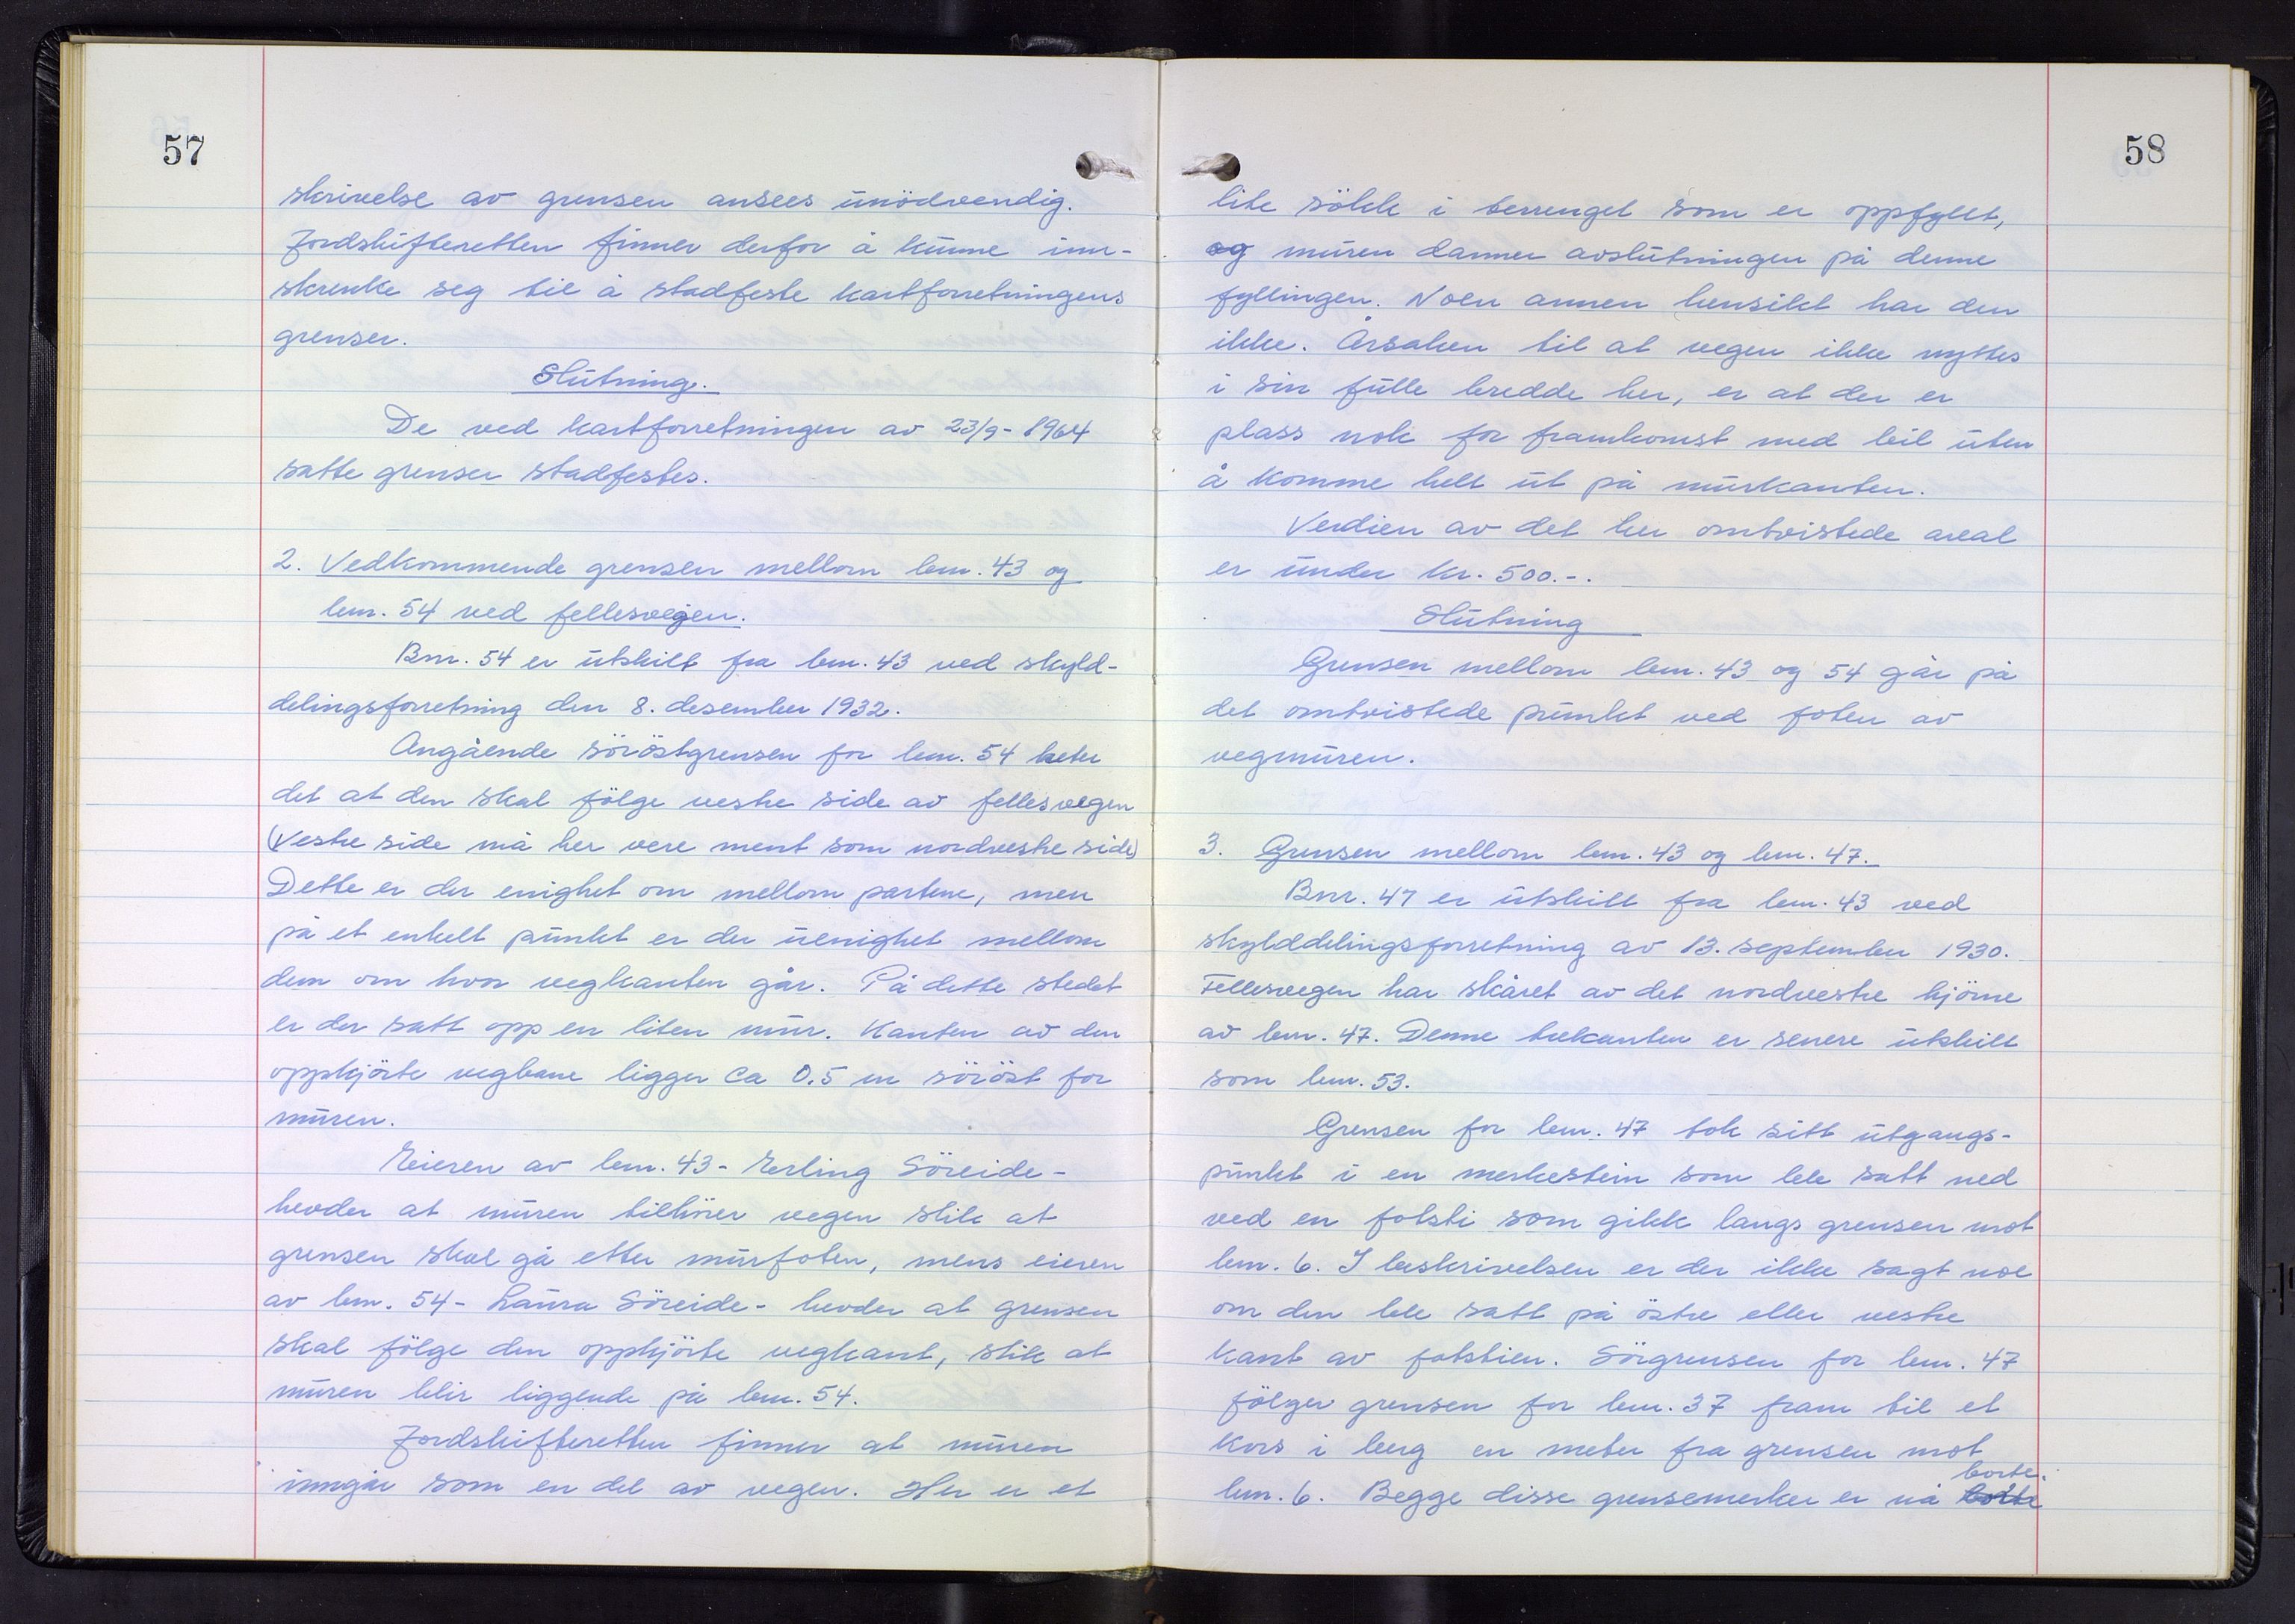 57
skrivelse av grensen ansees unödvendig.
Jordskifteretten finner derfor å kunne inn-
skrenke seg til å stadfeste kartforretningens
grenser.
Slutning.
De ved kartforretningen av 23/9-1964
satte grenser stadfestes.
2. Vedkommende grensen mellom bnr. 43 og
bnr. 54 ved fellesvegen.
Bnr. 54 er utskilt fra bnr. 43 ved skyld-
delingsforretning den 8. desember 1932.
Angående söröstgrensen for bnr. 54 heter
det at den skal fölge vestre side av fellesvegen
(Vestre side må her vere ment som nordvestre side)
Dette er der enighet om mellom partene, men
på et enkelt punkt er der uenighet mellom
dem om hvor vegkanten går. På dette stedet
er der satt opp en liten mur. Kanten av den
oppkjörte vegbane ligger ca 0.5 m söröst for
muren.
Eieren av bnr. 43 - Erling Söreide -
hevder at muren tilhörer vegen slik at
grensen skal gå etter murfoten, mens eieren
av bnr. 54 - Laura Söreide - hevder at grensen
skal fölge den oppkjörte vegkant, slik at
muren blir liggende på bnr. 54.
Jordskifteretten finner at muren
inngår som en del av vegen. Her er et
58
lite sökk i terrenget som er oppfyllt,
og muren danner avslutningen på denne
fyllingen. Noen annen hensikt har den
ikke. Årsaken til at vegen ikke nyttes
i sin fulle bredde her, er at der er
plass nok for framkomst med bil uten
å komme helt ut på murkanten.
Verdien av det her omtvistede areal
er under kr. 500.-.
Slutning
Grensen mellom bnr. 43 og 54 går på
det omtvistede punkt ved foten av
vegmuren.
3. Grensen mellom bnr. 43 og bnr. 47.
Bnr. 47 er utskilt fra bnr. 43 ved
skylddelingsforretning av 13. september 1930.
Fellesvegen har skåret av det nordvestre hjörne
av bnr. 47. Denne trekanten er senere utskilt
som bnr. 53.
Grensen for bnr. 47 tok sitt utgangs-
punkt i en merkestein som ble satt ned
ved en fotsti som gikk langs grensen mot
bnr. 6. I beskrivelsen er der ikke sagt noe
om den ble satt på östre eller vestre
kant av fotstien. Sörgrensen for bnr. 47
fölger grensen for bnr. 37 fram til et
kors i berg en meter fra grensen mot
bnr. 6. Begge disse grensemerker er nå borte.